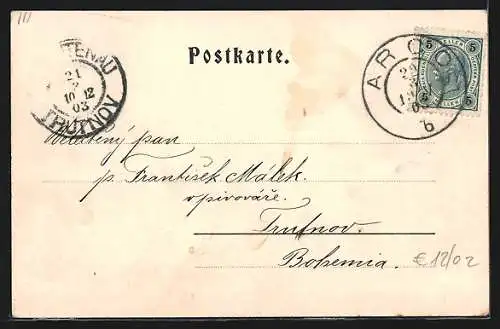 Postkarte.
TRAUTENAU
21
10-12
03
TRUTNOV
ARCO
b
5 5
5 5
Velectěný pan
p. František Málek.
v pivováře.
Trutnov.
Bohemia.
€ 12/02